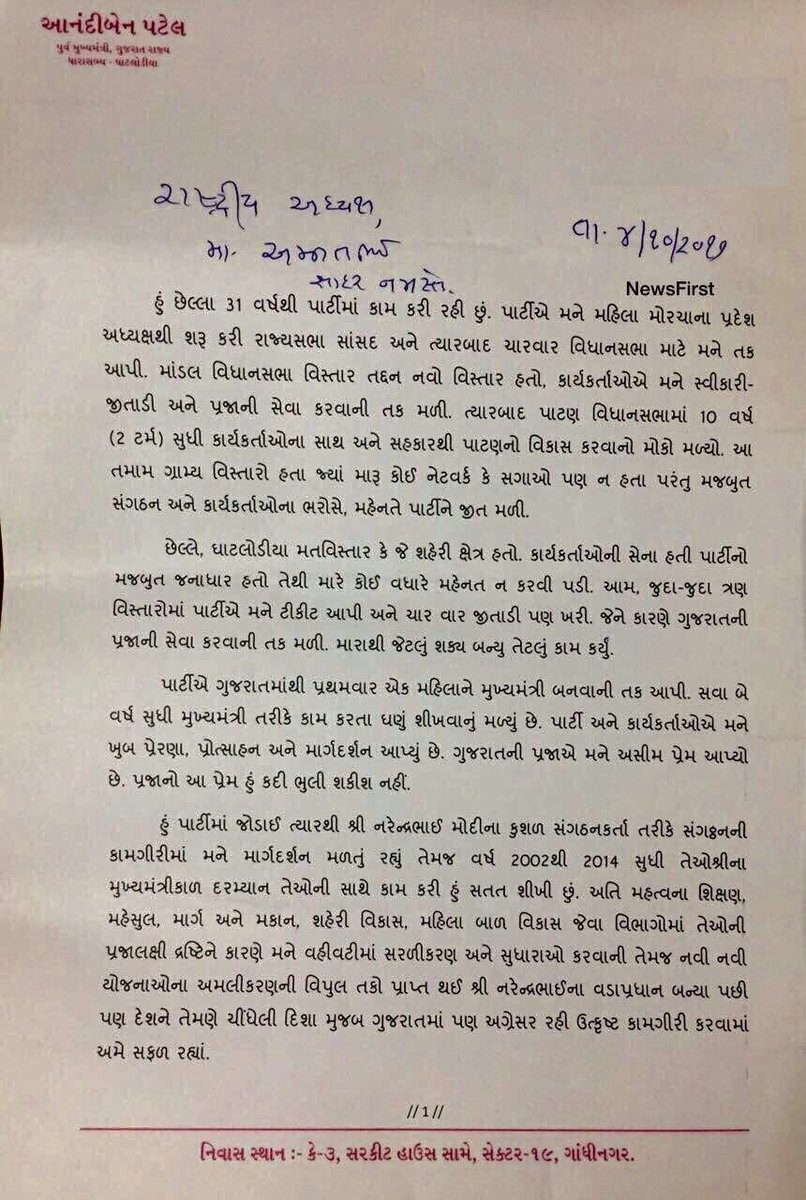 આનંદીબેન પટેલ
પુર્વ મુખ્યમંત્રી, ગુજરાત રાજ્ય
ધારાસભ્ય - ઘાટલોડિયા
રાષ્ટ્રીય અધ્યક્ષ,
મા. અમીતભાઈ
સાદર નમસ્તે.
તા. ૪/૧૦/૨૦૧૭
NewsFirst
હું છેલ્લા 31 વર્ષથી પાર્ટીમાં કામ કરી રહી છું. પાર્ટીએ મને મહિલા મોરચાના પ્રદેશ
અધ્યક્ષથી શરૂ કરી રાજ્યસભા સાંસદ અને ત્યારબાદ ચારવાર વિધાનસભા માટે મને તક
આપી. માંડલ વિધાનસભા વિસ્તાર તદ્દન નવો વિસ્તાર હતો, કાર્યકર્તાઓએ મને સ્વીકારી-
જીતાડી અને પ્રજાની સેવા કરવાની તક મળી. ત્યારબાદ પાટણ વિધાનસભામાં 10 વર્ષ
(2 ટર્મ) સુધી કાર્યકર્તાઓના સાથ અને સહકારથી પાટણનો વિકાસ કરવાનો મોકો મળ્યો. આ
તમામ ગ્રામ્ય વિસ્તારો હતા જ્યાં મારૂ કોઈ નેટવર્ક કે સગાઓ પણ ન હતા પરંતુ મજબુત
સંગઠન અને કાર્યકર્તાઓના ભરોસે, મહેનતે પાર્ટીને જીત મળી.
છેલ્લે, ઘાટલોડીયા મતવિસ્તાર કે જે શહેરી ક્ષેત્ર હતો. કાર્યકર્તાઓની સેના હતી પાર્ટીનો
મજબુત જનાધાર હતો તેથી મારે કોઈ વધારે મહેનત ન કરવી પડી. આમ, જુદા-જુદા ત્રણ
વિસ્તારોમાં પાર્ટીએ મને ટીકીટ આપી અને ચાર વાર જીતાડી પણ ખરી. જેને કારણે ગુજરાતની
પ્રજાની સેવા કરવાની તક મળી. મારાથી જેટલું શક્ય બન્યુ તેટલું કામ કર્યું.
પાર્ટીએ ગુજરાતમાંથી પ્રથમવાર એક મહિલાને મુખ્યમંત્રી બનવાની તક આપી. સવા બે
વર્ષ સુધી મુખ્યમંત્રી તરીકે કામ કરતા ઘણું શીખવાનું મળ્યું છે. પાર્ટી અને કાર્યકર્તાઓએ મને
ખુબ પ્રેરણા, પ્રોત્સાહન અને માર્ગદર્શન આપ્યું છે. ગુજરાતની પ્રજાએ મને અસીમ પ્રેમ આપ્યો
છે. પ્રજાનો આ પ્રેમ હું કદી ભુલી શકીશ નહીં.
હું પાર્ટીમાં જોડાઈ ત્યારથી શ્રી નરેન્દ્રભાઈ મોદીના કુશળ સંગઠનકર્તા તરીકે સંગઠ્ઠનની
કામગીરીમાં મને માર્ગદર્શન મળતું રહ્યું તેમજ વર્ષ 2002થી 2014 સુધી તેઓશ્રીના
મુખ્યમંત્રીકાળ દરમ્યાન તેઓની સાથે કામ કરી હું સતત શીખી છું. અતિ મહત્વના શિક્ષણ,
મહેસુલ, માર્ગ અને મકાન, શહેરી વિકાસ, મહિલા બાળ વિકાસ જેવા વિભાગોમાં તેઓની
પ્રજાલક્ષી દ્રષ્ટિને કારણે મને વહીવટીમાં સરળીકરણ અને સુધારાઓ કરવાની તેમજ નવી નવી
યોજનાઓના અમલીકરણની વિપુલ તકો પ્રાપ્ત થઈ શ્રી નરેન્દ્રભાઈના વડાપ્રધાન બન્યા પછી
પણ દેશને તેમણે ચીંધેલી દિશા મુજબ ગુજરાતમાં પણ અગ્રેસર રહી ઉત્કૃષ્ટ કામગીરી કરવામાં
અમે સફળ રહ્યાં.
//1//
નિવાસ સ્થાન :- કે-૩, સરકીટ હાઉસ સામે, સેક્ટર-૧૯, ગાંધીનગર.